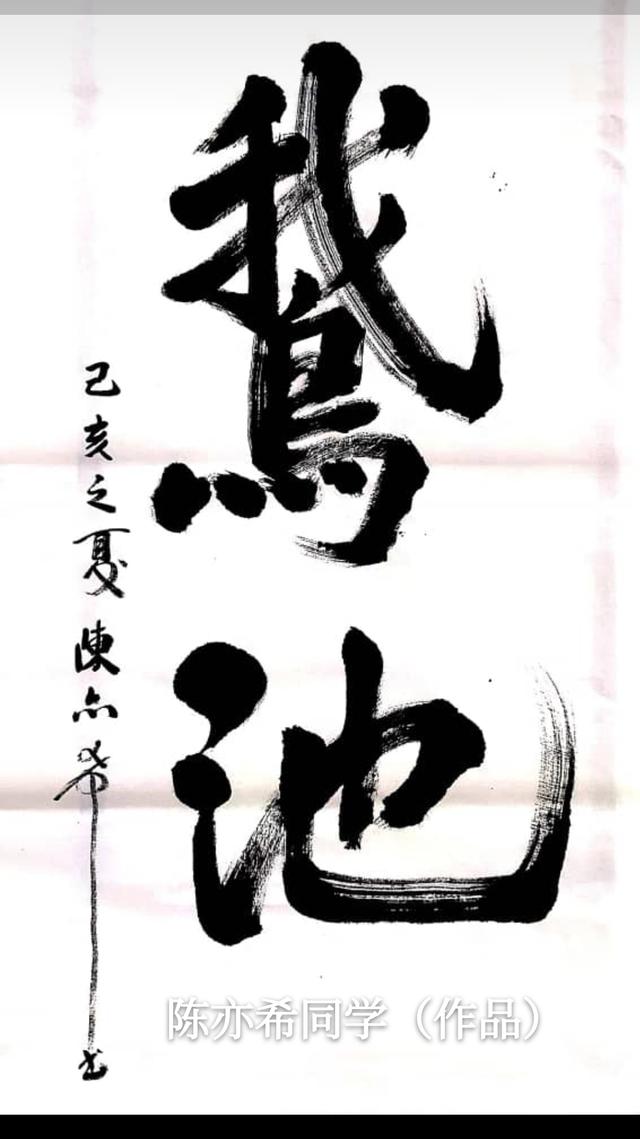 鵞池
己亥之夏陳亦希书
陈亦希同学（作品）